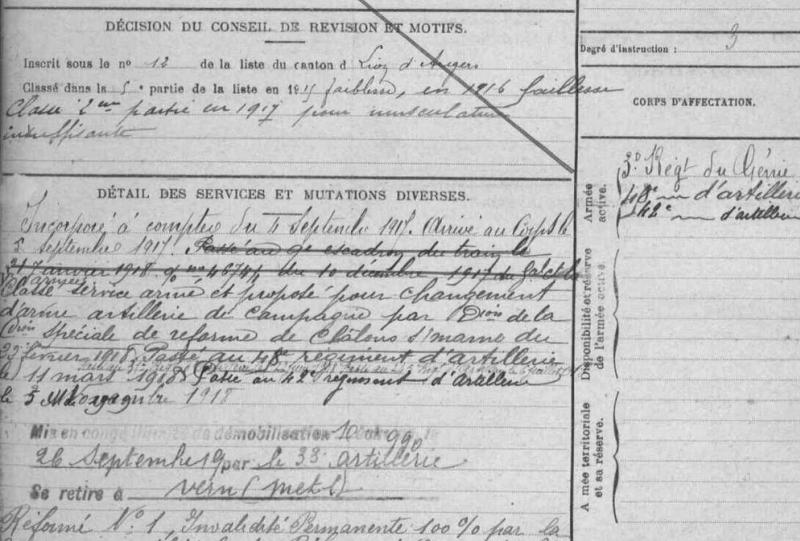 DÉCISION DU CONSEIL DE REVISION ET MOTIFS.
Inscrit sous le no 12 de la liste du canton d Lion d'Angers
Classé dans la 5e partie de la liste en 1915 faiblesse, en 1916 faiblesse
Classé 2eme partie en 1917 pour musculature
insuffisante
DÉTAIL DES SERVICES ET MUTATIONS DIVERSES.
Incorporé à compter du 4 Septembre 1917. Arrivé au Corps le
5 septembre 1917. Passé au escadron du train le
21 Janvier 1918 du 10 décembre 1917
Classé service armé et proposé pour changement
d'arme artillerie de campagne par Don de la
Con spéciale de reforme de Châlons s/marne du
23 février 1918 Passé au 48e régiment d'artillerie
le 11 mars 1918 Passé au 42e régiment d'artillerie
le 5 1918
Mis en congé illimité de démobilisation
26 Septembre 19 par le 33e artillerie
Se retire à Vern (Met L)
Réformé No 1 Invalidité Permanente 100% par la
Degré d'instruction : 3
CORPS D'AFFECTATION.
Armée
active.
3e Régt du Génie
48e d'artillerie
42e d'artillerie
Disponibilité et réserve
de l'armée active.
A mée territoriale
et sa réserve.